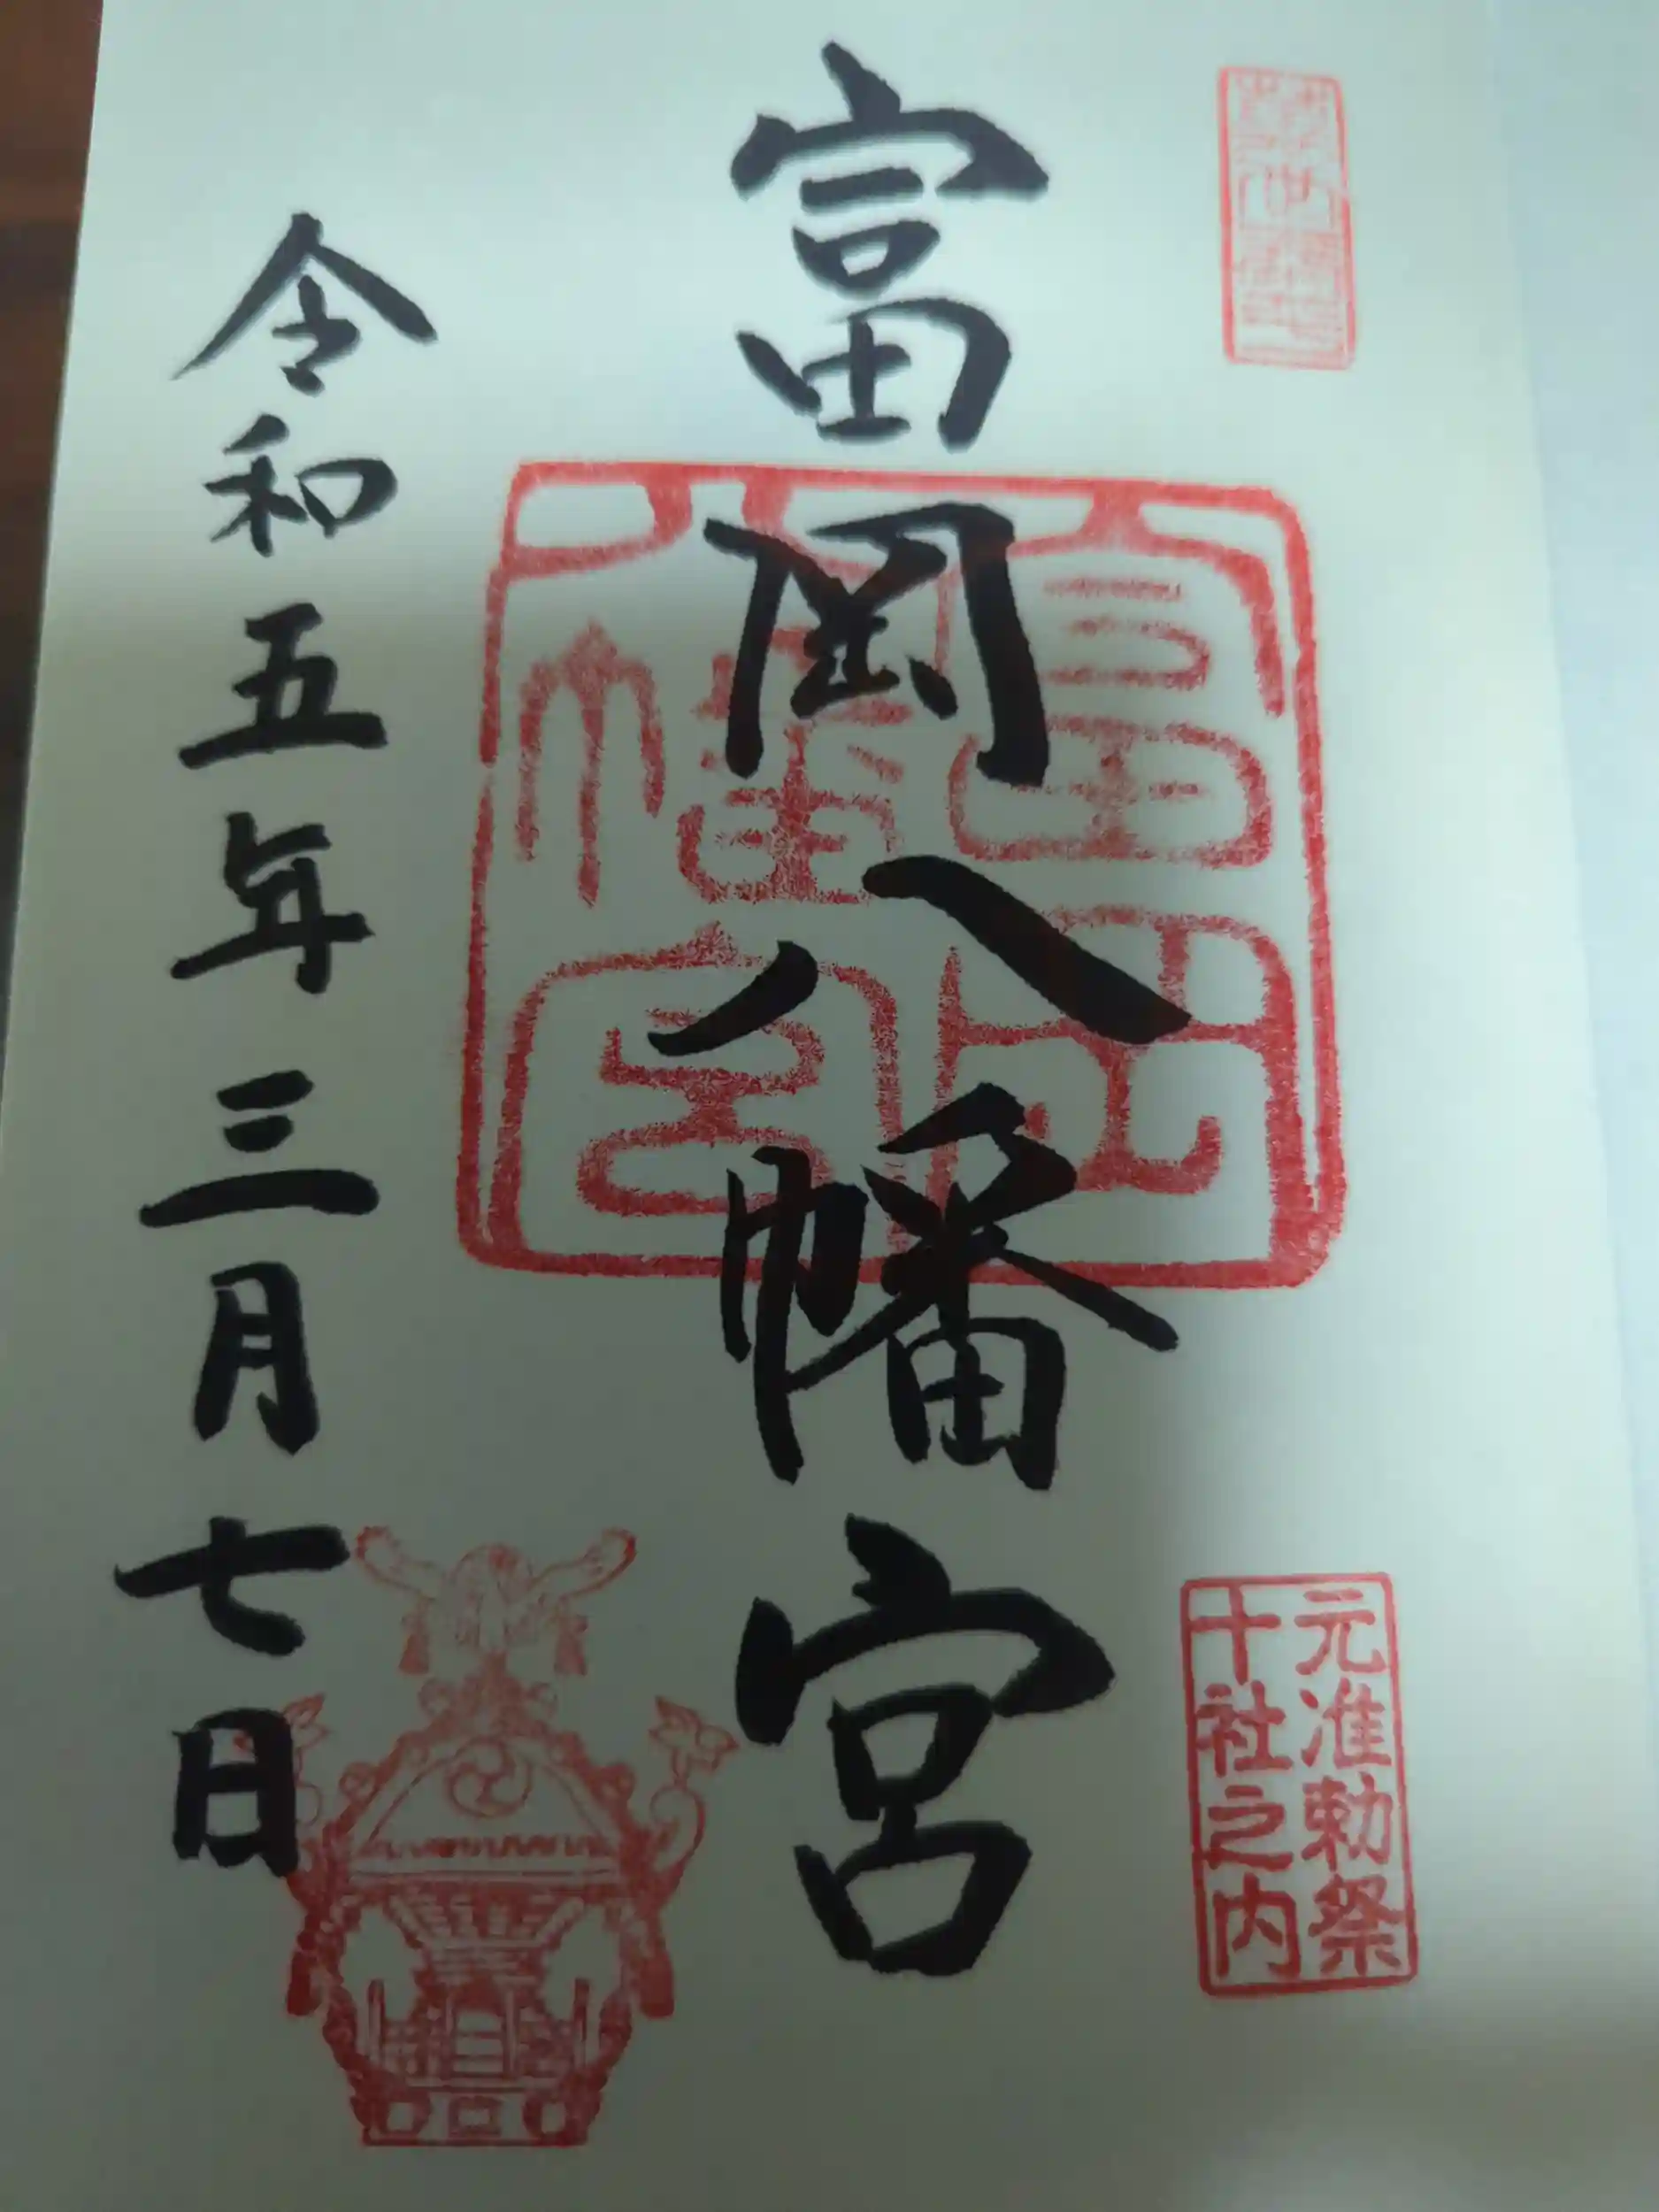 元准勅祭
十社之内
富岡八幡宮
富岡
八幡宮
令和五年三月七日